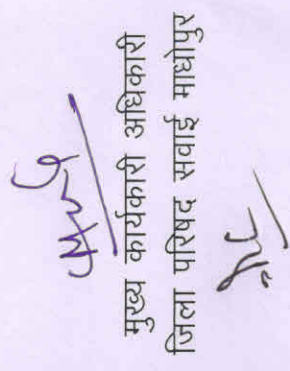 मुख्य कार्यकारी अधिकारी
जिला परिषद सवाई माधोपुर